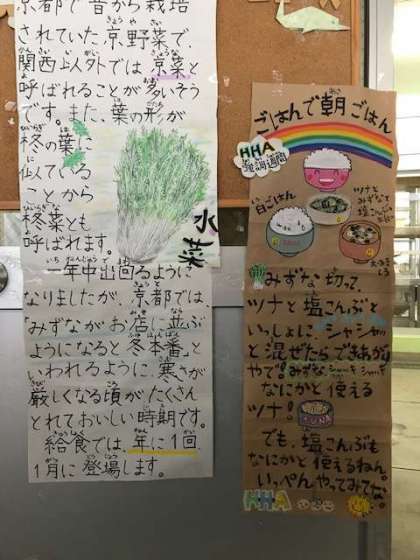 京都で昔から栽培
されていた京野菜で、
関西以外では京菜と
呼ばれることが多いそう
です。また、葉の形が
柊の葉に
似ている
ことから
柊菜とも
呼ばれます。
水菜
一年中出回るように
なりましたが、京都では、
「みずながお店に並ぶ
ようになると冬本番」と
いわれるように寒さが
厳しくなる頃がたくさん
とれておいしい時期です。
給食では、年に1回
1月に登場します。
ごはんで朝ごはん
HHA
強調週間
白ごはん
ツナと
みずなと
塩こんぶ
みそ
しる
みずな切って、
ツナと塩こんぶと
いっしょに、シャシャッ
と混ぜたらできあがり
やで!みずな、シャキシャキ
なにかと使える
ツナ!
TUNA
でも、塩こんぶも
なにかと使えるねん。
いっぺんやってみてな。
HHA